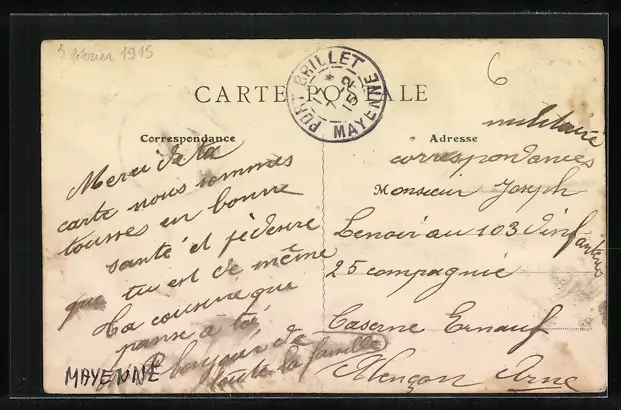 2 février 1915
6
CARTE POSTALE
PORT BRILLET
* 7-2 15
MAYENNE
Correspondance
Merci de ta
carte nous sommes
tousse en bonne
santé et jédeure
que tu est de même
ta cousine que
panse à toi
bonjour de
toute la famille
MAYENNE
Adresse
militaire
correspondances
Monsieur Joseph
Lenoir au 103 d'infanterie
25 compagnie
Caserne Ernauf
Alençon Orne